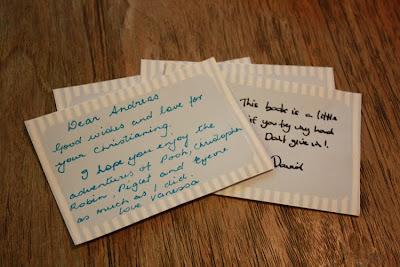 Dear Andreas
Good wishes and love for
your Christianing.
I hope you enjoy the
adventures of Pooh, Christopher
Robin, Piglet and Eyeore
as much as I did.
Love Vanessa
This book is a little
if you try very hard
Don't give in!
David